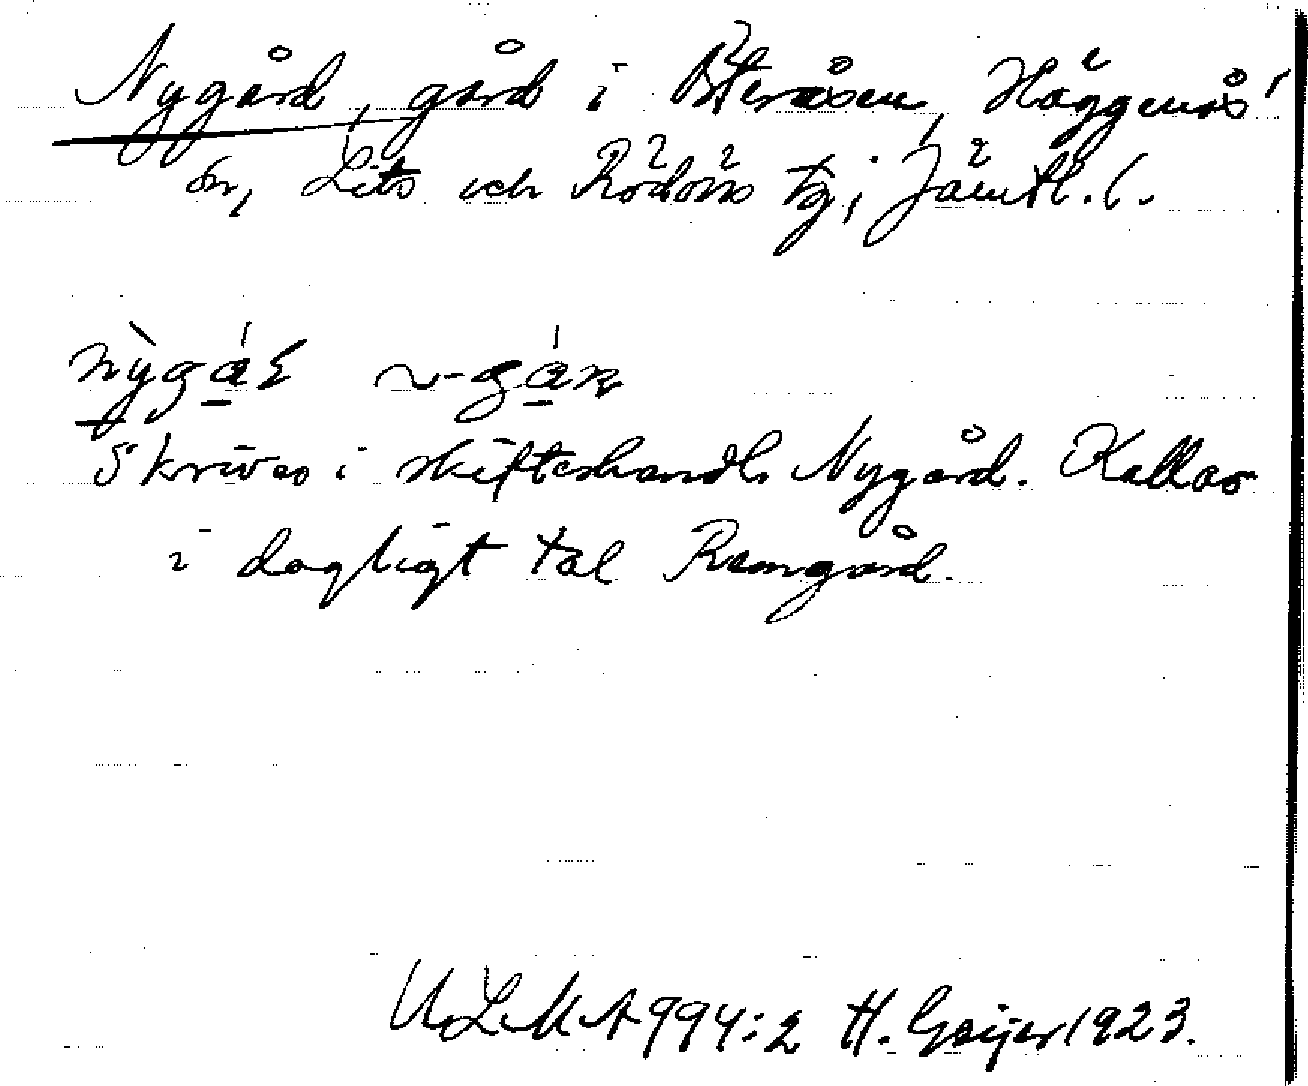 Nygård, gård i Österåsen, Häggenås'
sn, Lits och Rödöns tg, Jämtl. l.
nỳgá̱ɫ ~ -gá̱ɳ
Skrives i skifteshandl. Nygård. Kallas
i dagligt tal Ramgård.
ULMA 994:2 H. Geijer 1923.